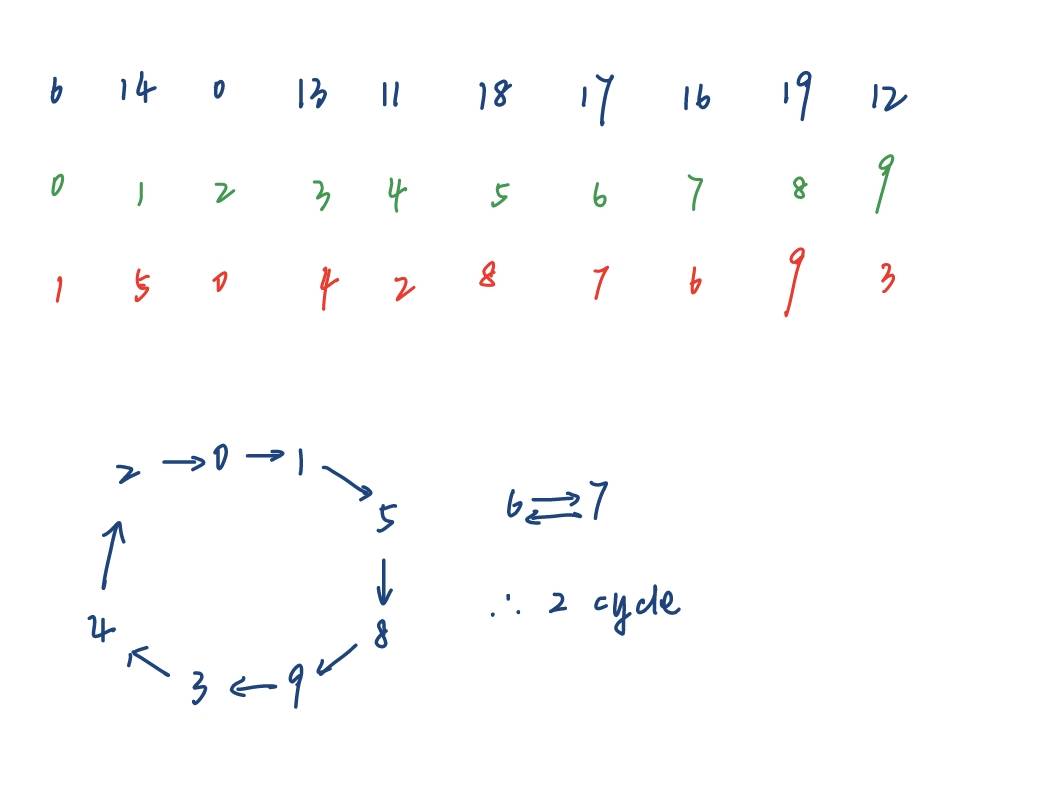 6 14 0 13 11 18 17 16 19 12
0 1 2 3 4 5 6 7 8 9
1 5 0 4 2 8 7 6 9 3
2 → 0 → 1
5
6 ⇄ 7
∴ 2 cycle
4 8
3 ← 9